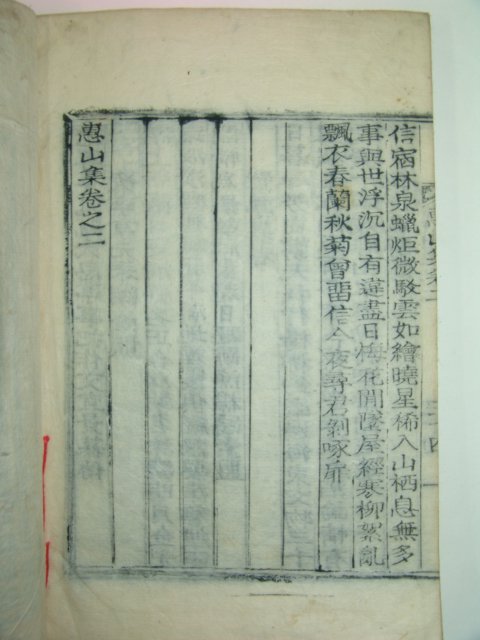 信宿林泉蠟炬微駁雲如繪曉星稀入山栖息無多
事與世浮沉自有違盡日梅花開墜屋經寒柳絮亂
飄衣春蘭秋菊曾留信今夜尋君剝啄扉
愚山集卷之二